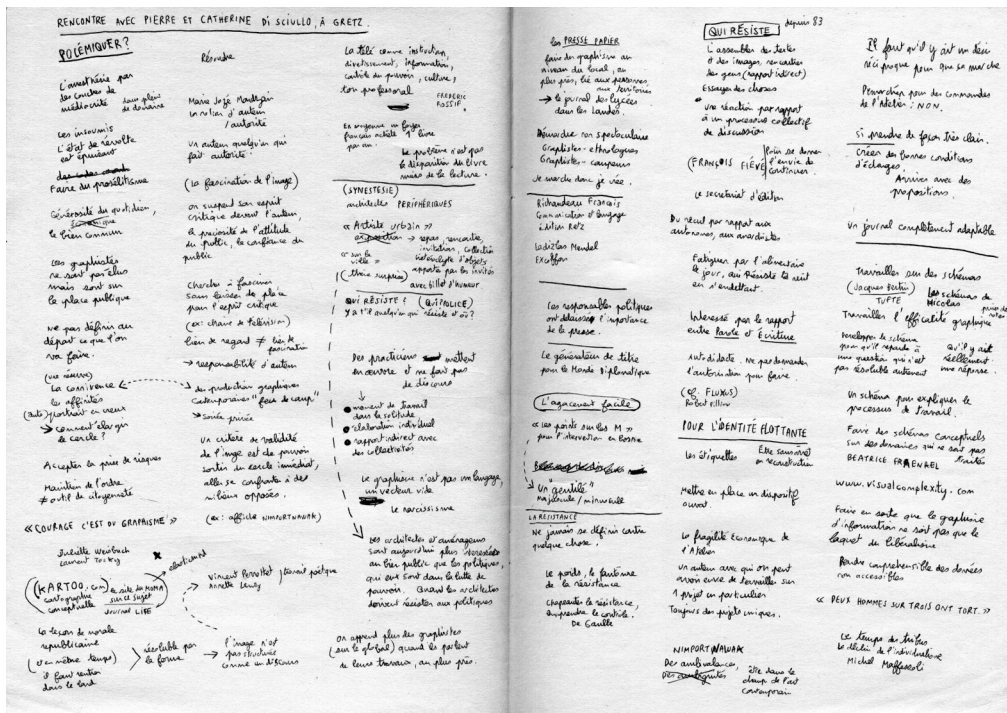 RENCONTRE AVEC PIERRE ET CATHERINE DI SCIULLO, À GRETZ.
POLÉMIQUER ?
L'anesthésie par
des couches de
médiocrité dans plein
de domaine
Les insoumis
L'état de révolte
est épuisant
Faire du prosélitisme
Générosité du quotidien,
le bien commun
Les graphistes
ne sont pas élus
mais sont sur
la place publique
Ne pas définir au
départ ce que l'on
va faire.
(une réserve)
La connivence
les affinités
(auto)portrait en creux
→ comment élargir
le cercle ?
Accepter la prise de risques
Maintien de l'ordre
≠ outil de citoyenneté
« COURAGE C'EST DU GRAPHISME »
Juliette Weisbuch
(KARTOO.com)
cartographie
conceptuelle
le site du MOMA
sur ce sujet
Journal LIFE
La leçon de morale
républicaine
(d'en même temps)
il faut rentrer
dans le lard
Résoudre
Marie José Mondzain
La notion d'auteur
/autorité
un auteur quelqu'un qui
fait autorité.
(la fascination de l'image)
on suspend son esprit
critique devant l'auteur,
la préciosité de l'attitude
du public, la confiance du
public
Chercher à fasciner
sans laisser de place
pour l'esprit critique
(ex : chaîne de télévision)
lien de regard ≠ lien de
fascination
→ responsabilité d'auteur
des productions graphiques
contemporaines "feux de camp"
→ Soirée privée
Un critère de validité
de l'image est de pouvoir
sortir du cercle immédiat,
aller se confronter à des
milieux opposés.
(ex : affiche NIMPORTNAWAK)
elasticité
Vincent Perrottet, travail poétique
Annette Lenz
résoluble par
la forme
→ l'image n'est
pas structurée
comme un discours
La télé comme instruction,
divertissement, information,
contrôle du pouvoir, culture,
ton professoral
FREDERIC
ROSSIF
En moyenne un foyer
français achète 1 livre
par an.
Le problème n'est pas
la disparition du livre
mais de la lecture.
(SYNESTESIE)
architectes PERIPHÉRIQUES
« Artiste urbain »
exposition → repas, rencontre,
invitation, collection
hétéroclyte d'objets
apportés par les invités
avec billet d'humeur
« sur la
ville »
(thèse surprise)
QUI RÉSISTE ? (QUIPOLICE)
y a t'il quelqu'un qui résiste et où ?
Des practiciens mettent
en œuvre et ne font pas
de discours
● moment de travail
dans la solitude
● élaboration individuel
● rapport indirect avec
des collectivités
Le graphisme n'est pas un langage,
un vecteur vide
Le narcissisme
Les architectes et aménageurs
sont aujourd'hui plus intéressés
au bien public que les politiques,
qui eux sont dans la lutte de
pouvoir. Quand les architectes
doivent résister aux politiques
On apprend plus des graphistes
(sur le global) quand ils parlent
de leurs travaux, au plus près.
Les PRESSE PAPIER
faire du graphisme au
niveau du local, au
plus près, lié aux personnes,
aux territoires
→ le journal des lycées
dans les Landes.
Démarche non spectaculaire
Graphistes-ethnologues
Graphistes-campeurs
Je marche donc je crée.
Richaudeau François
Communication et langage
édition Retz
Ladislas Mandel
Excoffon
Les responsables politiques
ont délaissé l'importance
de la presse.
Le générateur de titre
pour le Monde Diplomatique
L'agacement facile
« Les points sur les M »
pour l'intervention en Bosnie
un "gentilé"
majuscule / minuscule
LA RÉSISTANCE
Ne jamais se définir contre
quelque chose.
Le poids, le fantôme
de la résistance
Chapeauter la résistance,
en prendre le contrôle.
De Gaulle
QUI RÉSISTE depuis 83
L'assembler des textes
et des images, rencontrer
des gens (rapport indirect)
Essayer des choses
● une réaction par rapport
à un processus collectif
de discussion
(FRANÇOIS FIÉVÉ) plaisir se donner
l'envie de
continuer
Le secrétariat d'édition
Du recul par rapport aux
autonomes, aux anarchistes
Fatiguer par l'alimentaire
le jour, qui Résiste la nuit
en s'endettant.
Interessé par le rapport
entre Parole et Écriture
Autodidacte, ne pas demander
l'autorisation pour faire.
(cf FLUXUS)
Robert Filliou
POUR L'IDENTITÉ FLOTTANTE
Les étiquettes Être sans arrêt
en reconstruction
Mettre en place un dispositif
ouvert.
La fragilité économique de
l'Atelier
Un auteur avec qui on peut
avoir envie de travailler sur
1 projet en particulier
Toujours des projets uniques.
NIMPORTNAWAK
Des ambivalences,
Des ambiguités
être dans le
champ de l'art
contemporain
Il faut qu'il y ait un désir
réciproque pour que ça marche
Démarcher pour des commandes
de l'Atelier : NON.
si prendre de façon très clair.
Créer des bonnes conditions
d'échanges.
Arriver avec des
propositions.
Un journal complètement adaptable
Travailler sur des schémas
(Jacques Bertin)
TUFTE
Les schémas de
Nicolas
prises de
notes
Travailler l'efficacité graphique
Développer le schéma
pour qu'il réponde à
une question qui n'est
pas résoluble autrement
qu'il y ait
réellement
une réponse.
Un schéma pour expliquer le
processus de travail.
Faire des schémas conceptuels
sur des domaines qui ne sont pas
traités
BEATRICE FRAENKEL
www.visualcomplexity.com
Faire en sorte que le graphisme
d'information ne soit pas que le
laquet du libéralisme
Rendre compréhensible des données
non accessibles
« DEUX HOMMES SUR TROIS ONT TORT. »
Le temps des tribus
Le déclin de l'individualisme
Michel Maffesoli